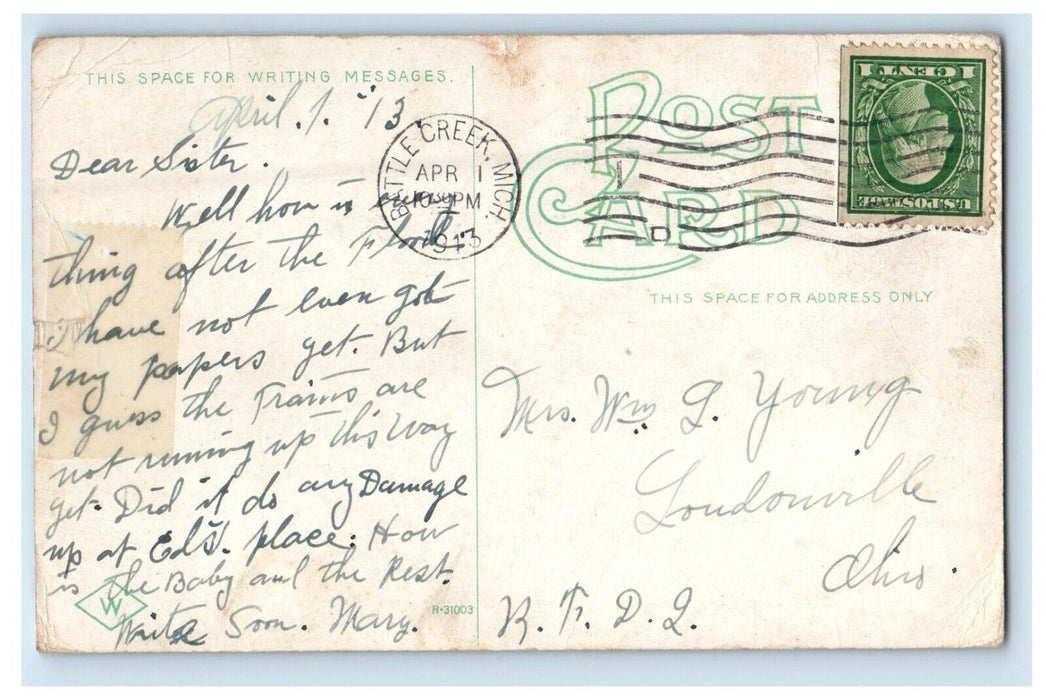 THIS SPACE FOR WRITING MESSAGES.
April. 1. '13
Dear Sister.
Well how is every
thing after the Flood.
I have not even got
my papers yet. But
I guess the Trains are
not runing up this way
yet. Did it do any Damage
up at Ed's. place. How
is the Baby and the Rest.
Write Soon. Mary.
W
R-31003
BATTLE CREEK, MICH.
APR 1
PM
1913
POST
CARD
1 CENT 1
U.S. POSTAGE
1
D
THIS SPACE FOR ADDRESS ONLY
Mrs. Wm L. Young
Loudonville
Ohio.
R. F. D. 2.